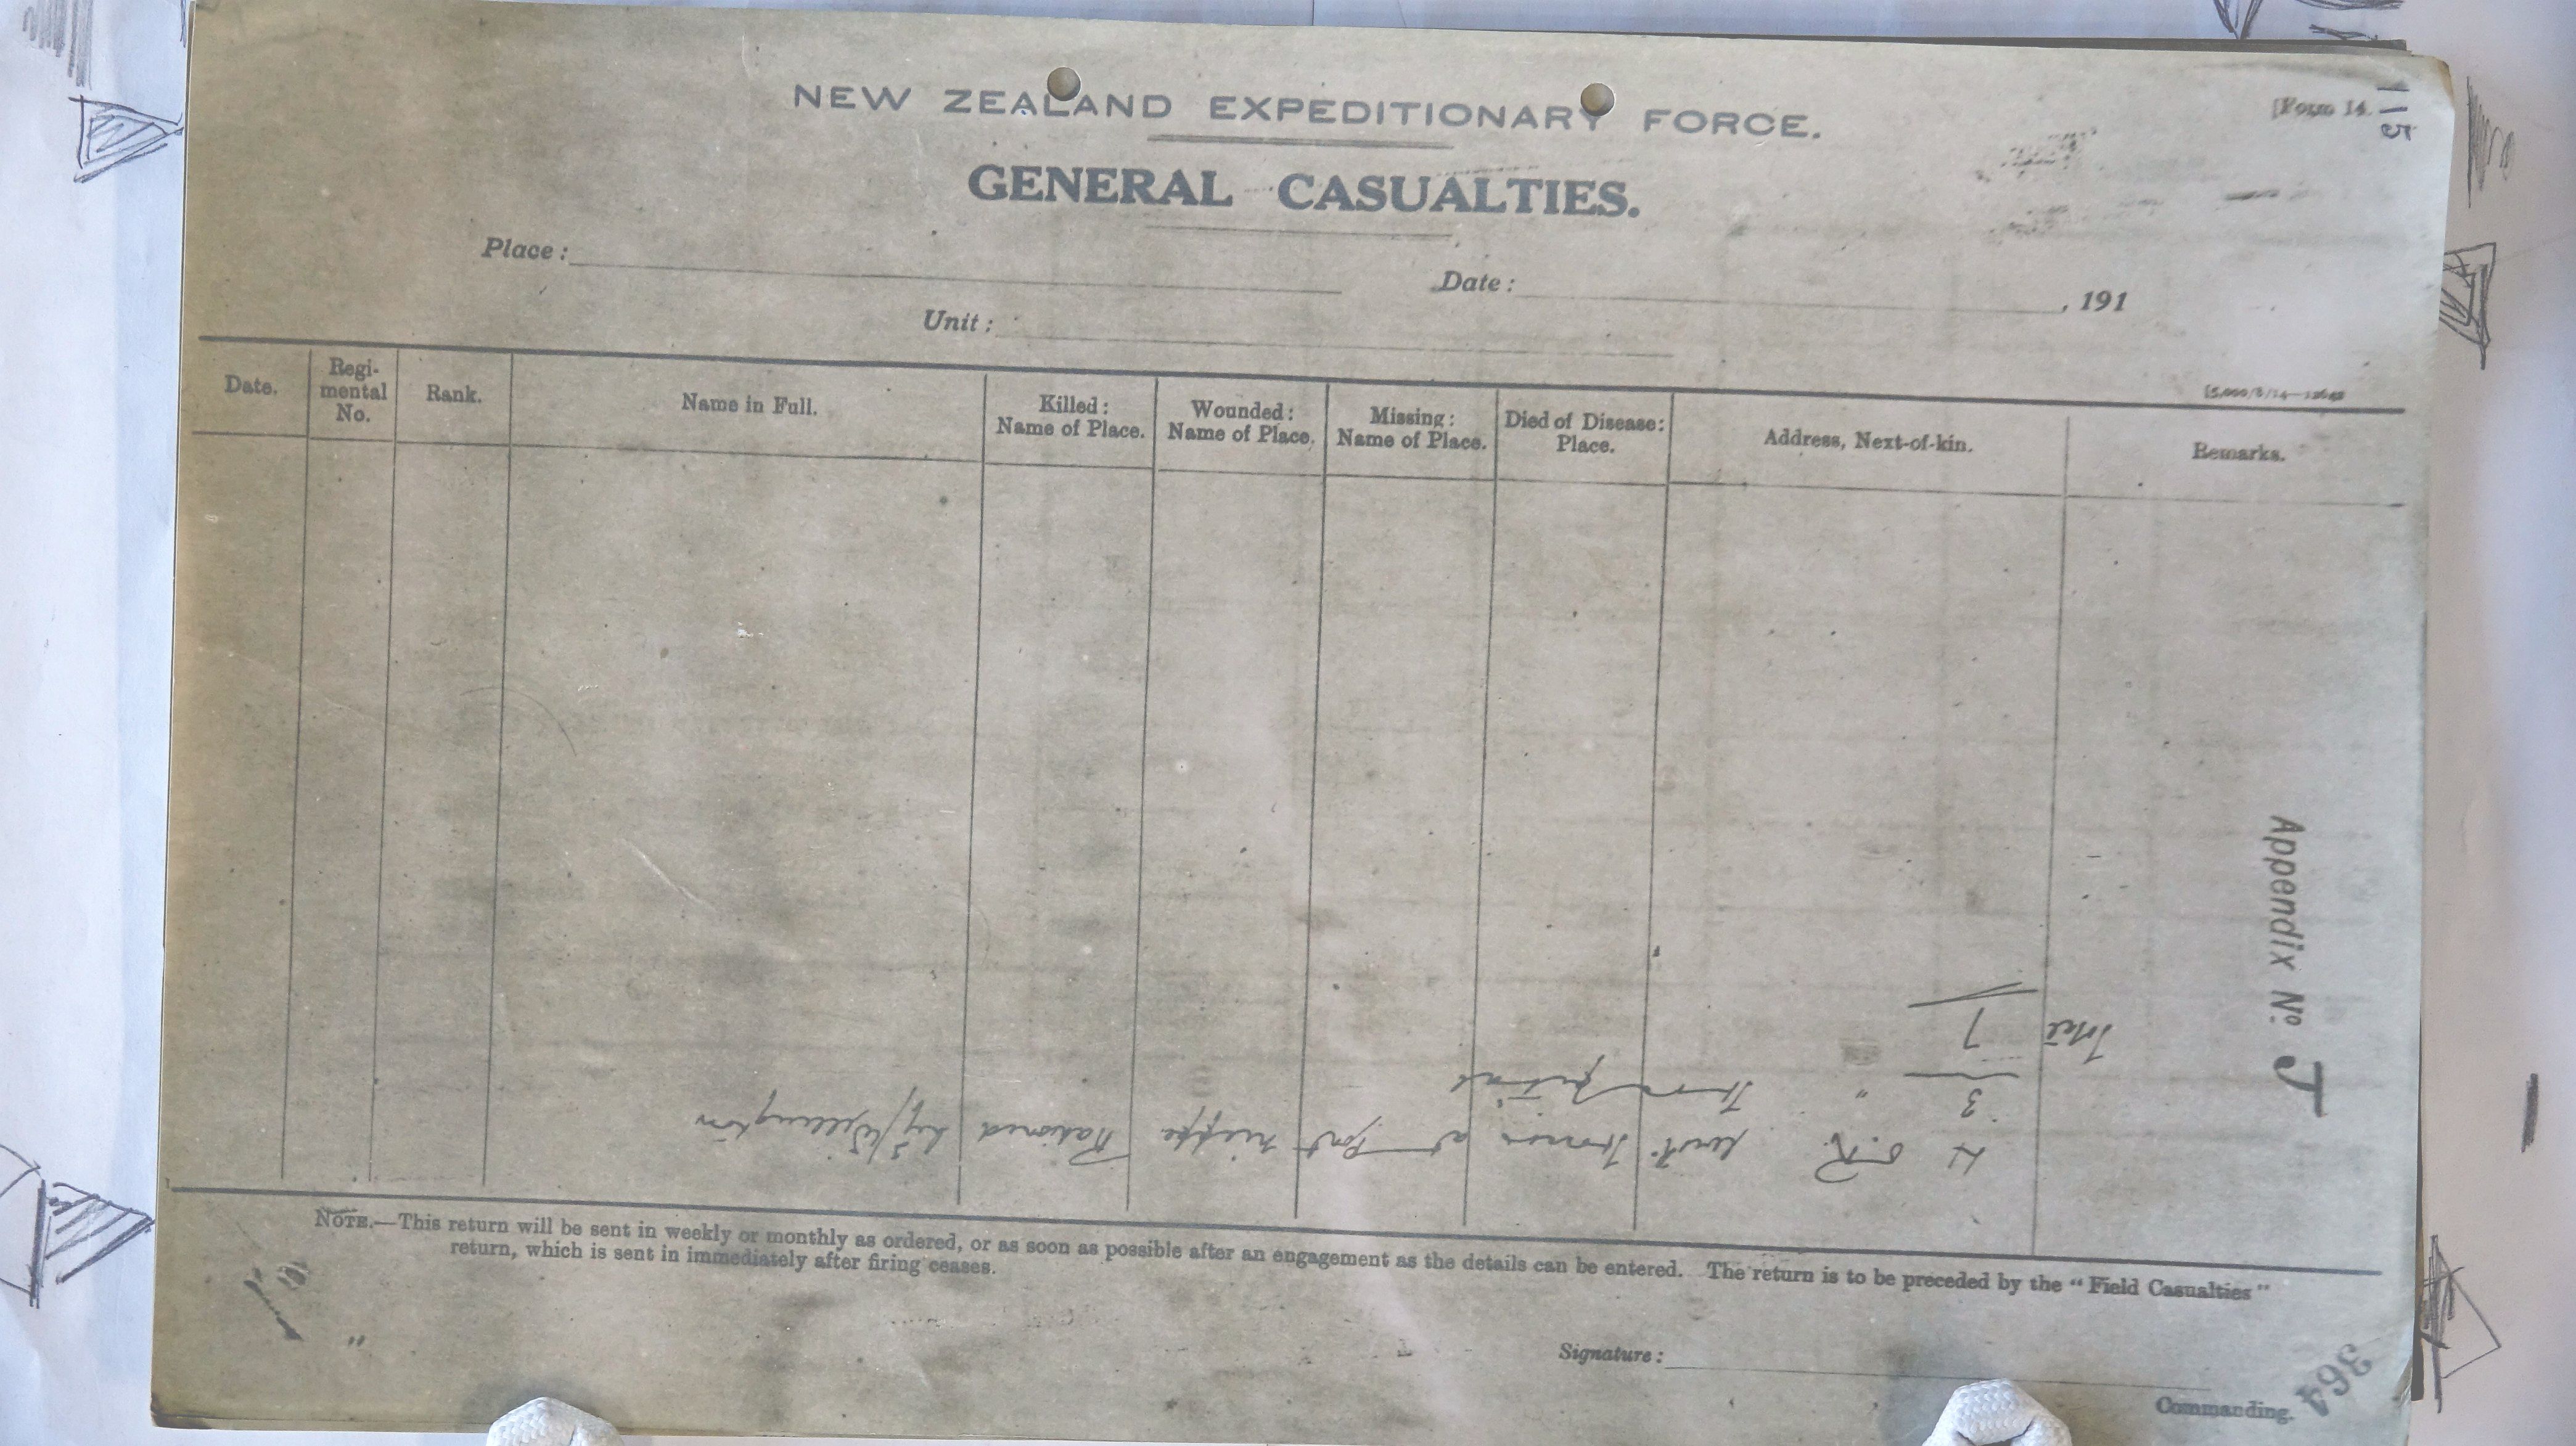 115
[Form 14.
NEW ZEALAND EXPEDITIONARY FORCE.
GENERAL CASUALTIES.
Place:
Date: , 191
Unit:
Date.
Regi-
mental
No.
Rank.
Name in Full.
Killed:
Name of Place.
Wounded:
Name of Place.
Missing:
Name of Place.
Died of Disease:
Place.
Address, Next-of-kin.
Remarks.
Appendix No. J
4 O.R. at Pont nieppe Rationed by 3/Wellington
3 "
7 Total
NOTE.—This return will be sent in weekly or monthly as ordered, or as soon as possible after an engagement as the details can be entered. The return is to be preceded by the "Field Casualties"
return, which is sent in immediately after firing ceases.
Signature:
Commanding.
364